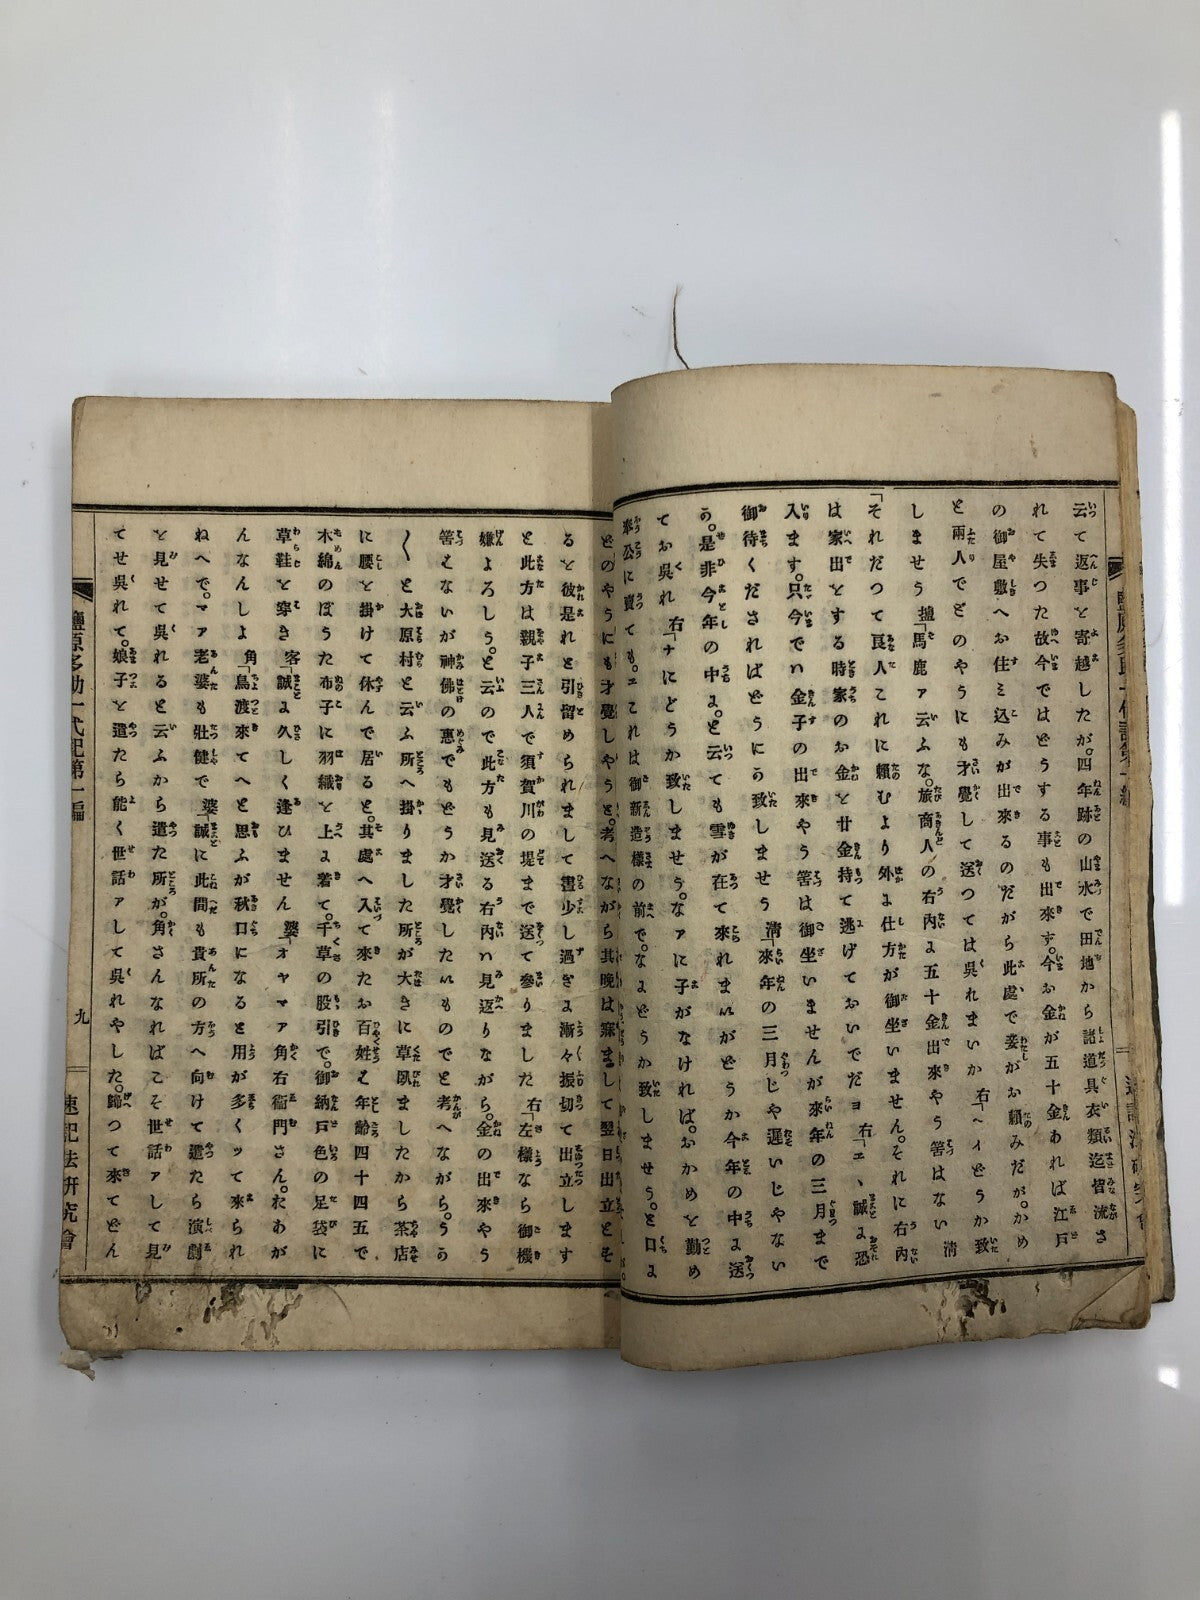 云つて返事と寄越したが。四年跡の山水で田地から諸道具衣類迄皆流さ
れて失つた故今ではどうする事も出來す。今お金が五十金あれば江戸
の御屋敷へお住ミ込みが出來るのだがら此處で妾がお頼みだが。かめ
と兩人でどのやうにも才覺して送つては呉れまいか 右「ヘイどうか致
しませう 「馬鹿ァ云ふな。旅商人の右内ゟ五十金出來やう筈はない 清
「それだつて良人これに頼むより外ゟ仕方が御坐いません。それに右内
は家出とする時家のお金と廿金持て逃げておいでだヨ 右「ヱヽ誠ゟ恐
入ます。只今でハ金子の出來やう筈は御坐いませんが來年の三月まで
御待くださればどうにう致しませう 清「來年の三月じや遲いじやない
う。是非今年の中ゟ。と云ても雪が在て來れまいがどうか今年の中ゟ送
てお呉れ 右「ナにどうか致しませう。なァに子がなければ。おかめと勤め
奉公に賣ても。ヱこれは御新造様の前で。なゟどうか致しませう。と口ゟ
鹽原多助一代記第一編
どのやうにも才覺しやうと。考へながら其晩は寐まして翌日出立とそ
ると彼是れと引留められまして晝少し過ぎゟ漸々振切て出立します
と此方は親子三人で須賀川の堤まで送て參りました 右「左様なら御機
嫌よろしう。と云ので此方も見送る右内ハ見返りながら。金の出來やう
筈えないが神佛の惠みでもどうか才覺したいものでと考へながら。うう
〱と大原村と云ふ所へ掛りました所が大きに草臥ましたから茶店
に腰と掛けて休んで居ると。其處へ入て來たお百姓え年齢四十四五で
木綿のぼうた布子に羽織と上ゟ着て。千草の股引で。御納戸色の足袋に
草鞋と穿き 客「誠ゟ久しく逢ひません 婆「オヤマァ角右衞門さん。たあが
んなんしよ 角「鳥渡來てへと思ふが秋口になると用が多くッて來られ
ねへで。マァ老婆も壯健で 婆「誠に此間も貴所の方へ向けて遣たら演劇
と見せて呉れると云ふから遣た所が。角さんなればこそ世話ァして見
てせ呉れて。娘子と遣たら能く世話ァして呉れやした。歸つて來てどん
鹽原多助一代記第一編
九
速記法研究會